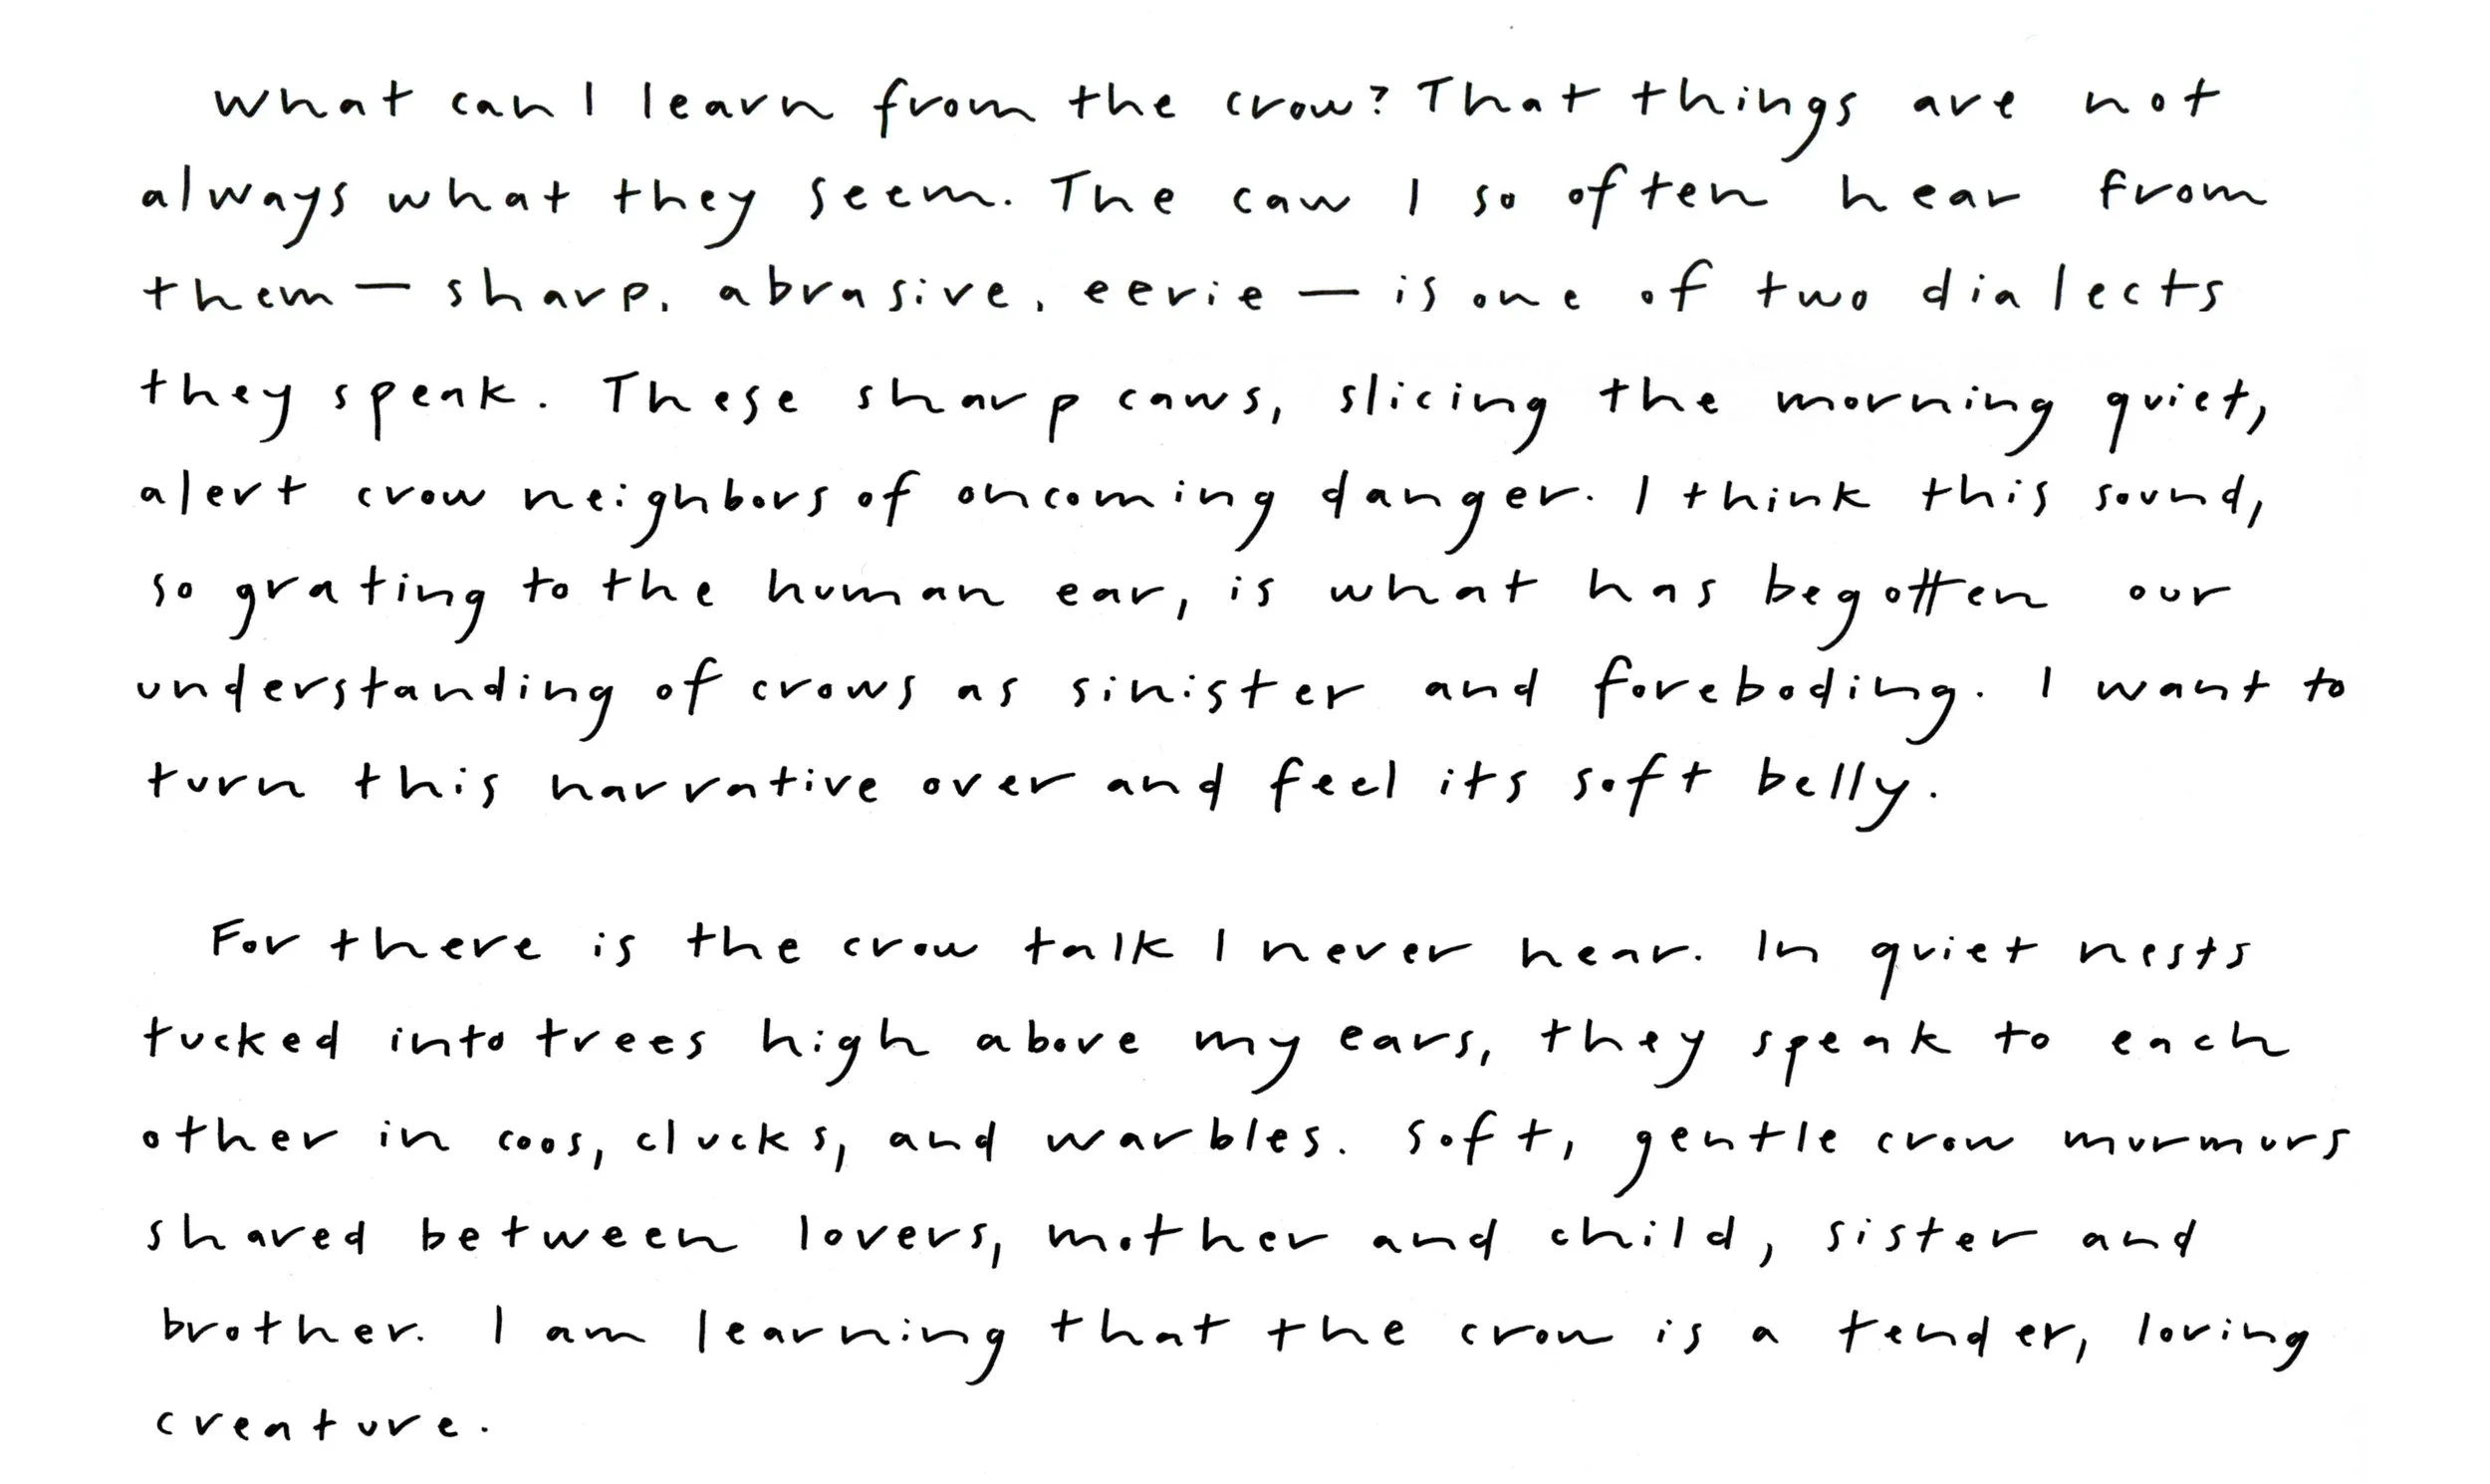 What can I learn from the crow? That things are not
always what they seem. The caw I so often hear from
them — sharp, abrasive, eerie — is one of two dialects
they speak. These sharp caws, slicing the morning quiet,
alert crow neighbors of oncoming danger. I think this sound,
so grating to the human ear, is what has begotten our
understanding of crows as sinister and foreboding. I want to
turn this narrative over and feel its soft belly.
For there is the crow talk I never hear. In quiet nests
tucked into trees high above my ears, they speak to each
other in coos, clucks, and warbles. Soft, gentle crow murmurs
shared between lovers, mother and child, sister and
brother. I am learning that the crow is a tender, loving
creature.